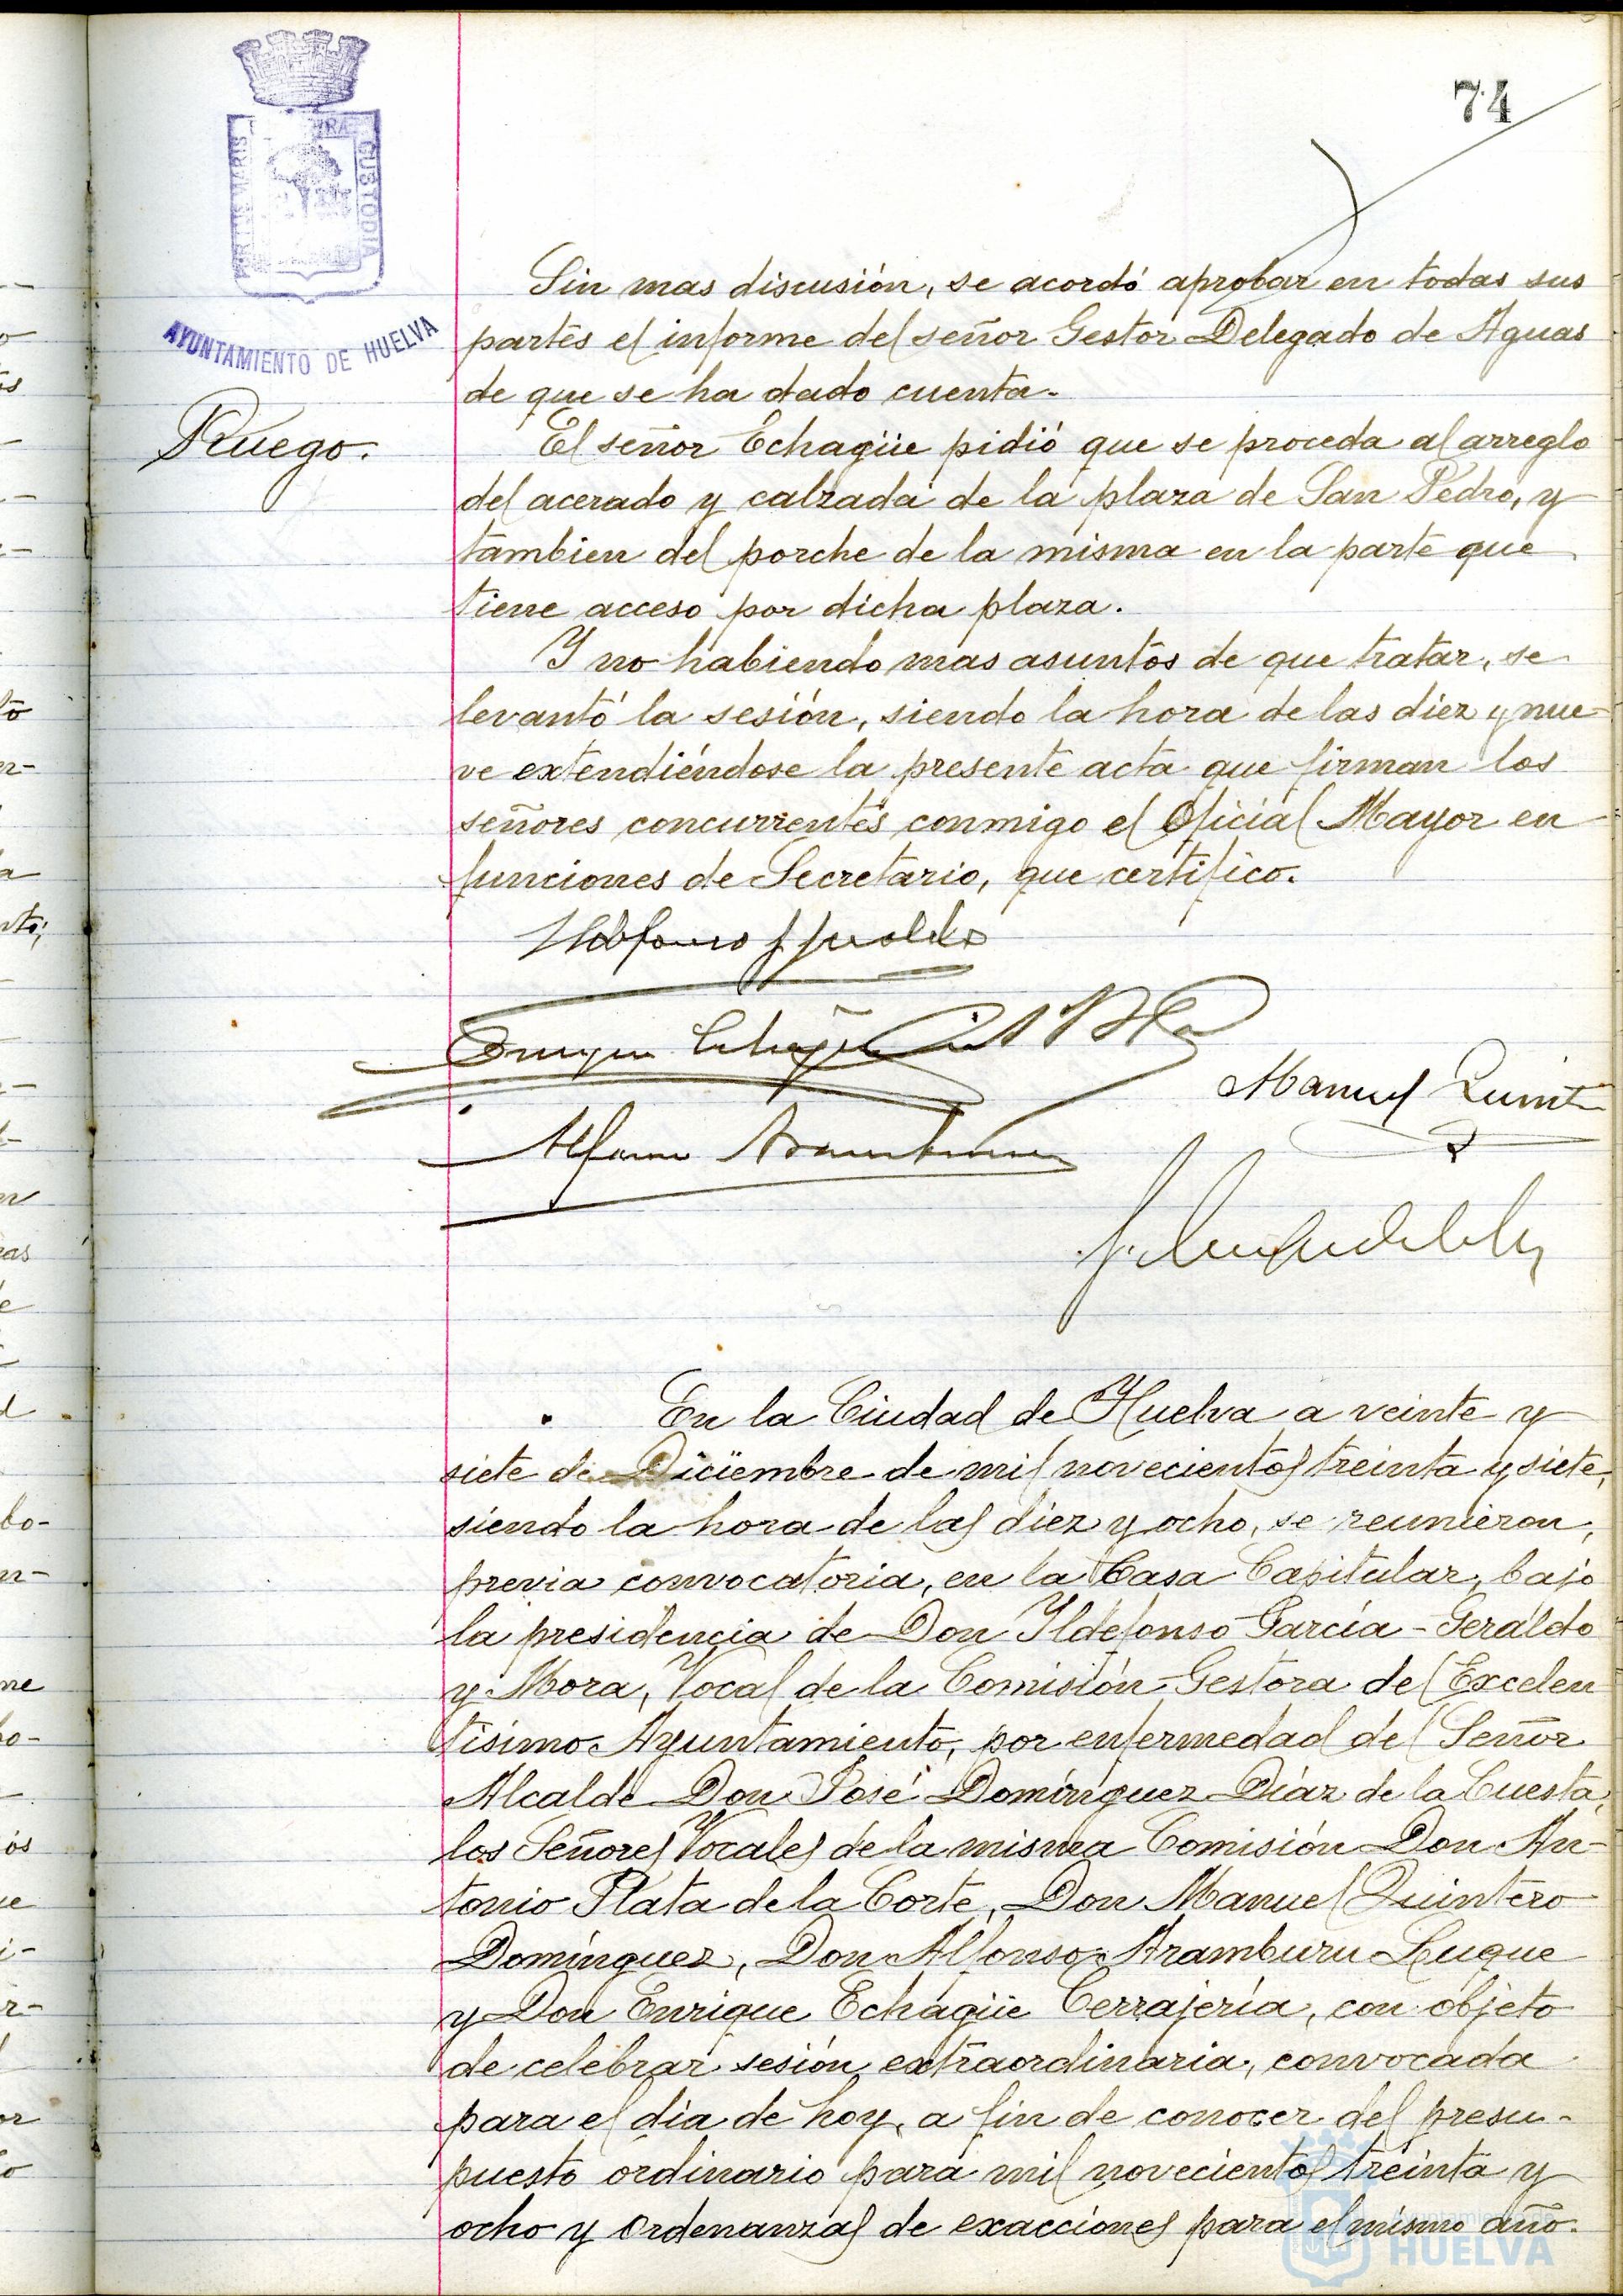 74
PORTUS MARIS
CUSTODIA
AYUNTAMIENTO DE HUELVA
Ruego.
Sin mas discusión, se acordó aprobar en todas sus
partes el informe del señor Gestor Delegado de Aguas
de que se ha dado cuenta.
El señor Echagüe pidió que se proceda al arreglo
del acerado y calzada de la plaza de San Pedro, y
tambien del porche de la misma en la parte que
tiene acceso por dicha plaza.
Y no habiendo mas asuntos de que tratar, se
levantó la sesión, siendo la hora de las diez y nue-
ve extendiéndose la presente acta que firman los
señores concurrentes conmigo el Oficial Mayor en
funciones de Secretario, que certifico.
Ildefonso G Geraldo
Enrique Echagüe
Manuel Quint
Alfonso Aramburu
En la Ciudad de Huelva a veinte y
siete de Diciembre de mil novecientos treinta y siete,
siendo la hora de las diez y ocho, se reunieron,
previa convocatoria, en la Casa Capitular, bajo
la presidencia de Don Ildefonso García-Geraldo
y Mora, Vocal de la Comisión Gestora del Excelen
tísimo Ayuntamiento, por enfermedad del Señor
Alcalde Don José Domínguez Díaz de la Cuesta,
los Señores Vocales de la misma Comisión Don An-
tonio Plata de la Corte, Don Manuel Quintero
Domínguez, Don Alfonso Aramburu Luque
y Don Enrique Echagüe Cerrajería, con objeto
de celebrar sesión extraordinaria, convocada
para el día de hoy, a fin de conocer del presu-
puesto ordinario para mil novecientos treinta y
ocho y Ordenanzas de exacciones para el mismo año.
Ayuntamiento de
HUELVA